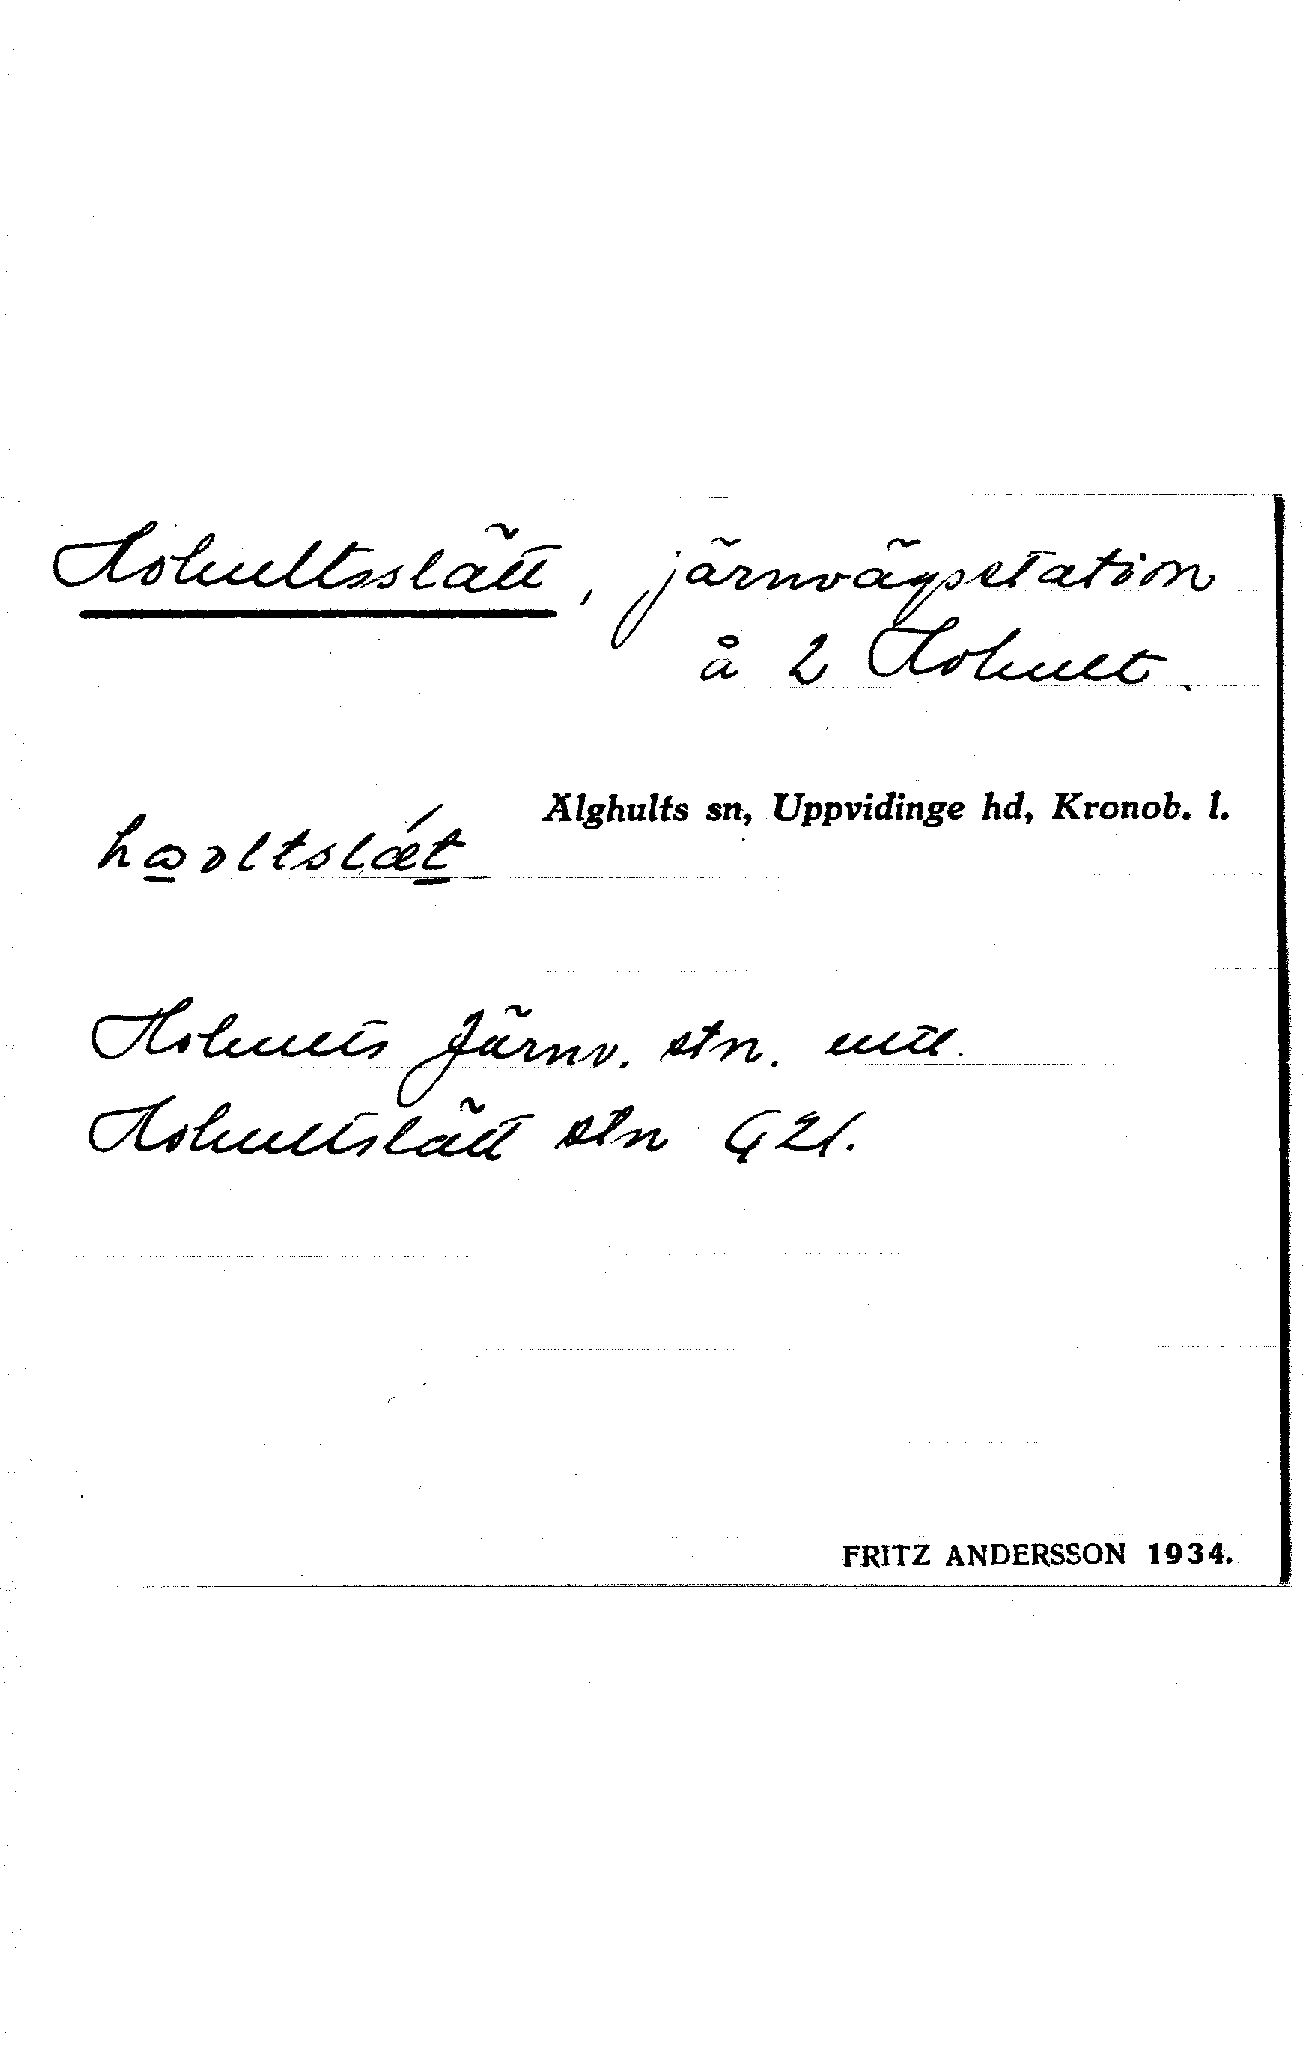 Hohultsslätt, järnvägsstation
å 2 Hohult.
Älghults sn, Uppvidinge hd, Kronob. l.
Hohults Järnv. stn.
Hohultslätt stn G21.
FRITZ ANDERSSON 1934.